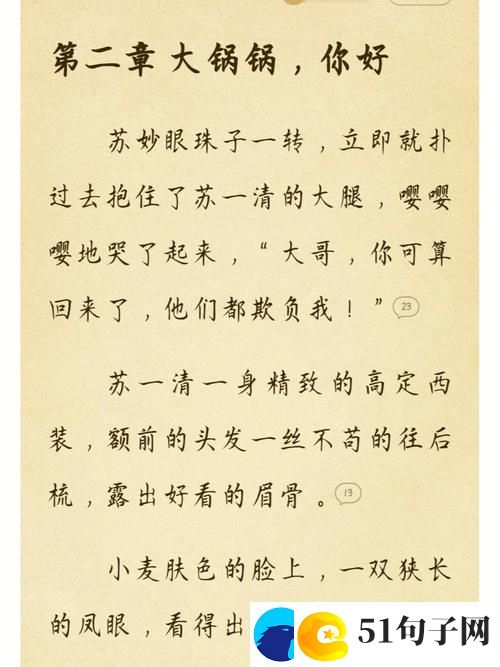 第二章 大锅锅，你好
苏妙眼珠子一转，立即就扑
过去抱住了苏一清的大腿，嘤嘤
嘤地哭了起来，“大哥，你可算
回来了，他们都欺负我！”23
苏一清一身精致的高定西
装，额前的头发一丝不苟的往后
梳，露出好看的眉骨。13
小麦肤色的脸上，一双狭长
的凤眼，看得出
51句子网